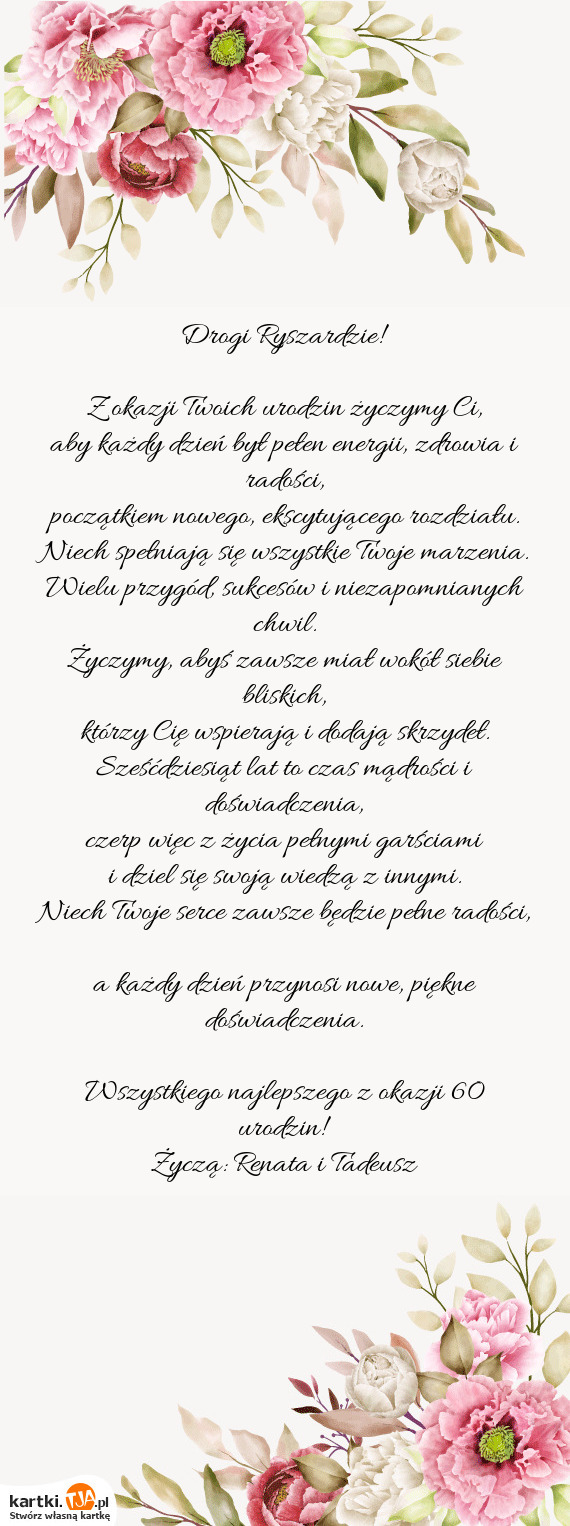 Drogi Ryszardzie!
Z okazji Twoich urodzin życzymy Ci,
aby każdy dzień był pełen energii, zdrowia i
radości,
początkiem nowego, ekscytującego rozdziału.
Niech spełniają się wszystkie Twoje marzenia.
Wielu przygód, sukcesów i niezapomnianych
chwil.
Życzymy, abyś zawsze miał wokół siebie
bliskich,
którzy Cię wspierają i dodają skrzydeł.
Sześćdziesiąt lat to czas mądrości i
doświadczenia,
czerp więc z życia pełnymi garściami
i dziel się swoją wiedzą z innymi.
Niech Twoje serce zawsze będzie pełne radości,
a każdy dzień przynosi nowe, piękne
doświadczenia.
Wszystkiego najlepszego z okazji 60
urodzin!
Życzą: Renata i Tadeusz
kartki.TJA.pl
Stwórz własną kartkę